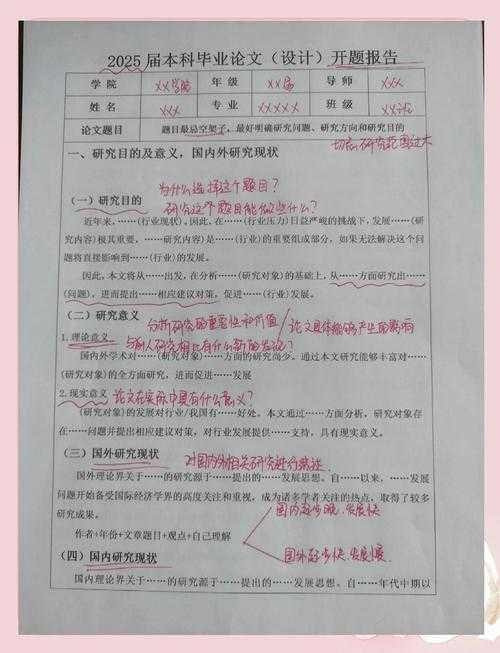 2025 届本科毕业论文（设计）开题报告
学院 xx学院 年级 xx届 导师 xxx
姓名 xxx 专业 xxxxx 班级 xx班
论文题目 题目最忌空架子，最好明确研究问题、研究方向和研究目的
切忌研究范围过大
一、研究目的及意义，国内外研究现状
为什么选择这个题目？
（一）研究目的
研究这个题目能做些什么？
近年来，……(行业现状)，因此，在……(行业压力)日益严峻的挑战下，发展……(研
究内容)极其重要，……研究内容)是……(行业)的重要组成部分，如果无法解决这个问
题将直接影响到……(行业)的发展。
因此，本文将从……出发，在分析……(研究对象)的基础上，从……方面研究出……
(问题)，进而提出……相应建议对策，促进……(行业)发展。
（二）研究意义
分析研究的重要性和价值 / 论文具体能够产生的影响
1.理论意义
与别人研究相比有什么新的发论？
国内外学术对……(研究对象)……方面的研究尚少。通过本文研究能够丰富对……
(研究对象)的全方面研究，进而促进……发展
2.现实意义 论文在实际中具有什么意义？
(研究对象)的发展对行业/我国有……好处。本文通过……方面分析，研究对象存
在……问题并提出相应建议对策，对行业发展提供……支持，具有现实意义。
（三）国外研究现状 对国内外相关研究进行概述
国外理论界关于……的研究源于……提出的……发展思想。自……以来，……发展
问题开始备受国际经济学界的高度关注和重视，成为诸多学者关注的热点，取得了较多
研究成果。
国内起步晚、发展快
作者+年份+文章题目+观点+自己理解
国外起步快、发展慢
（四）国内研究现状
国内理论界关于……的研究源于……提出的……发展思想。自……年代中期以